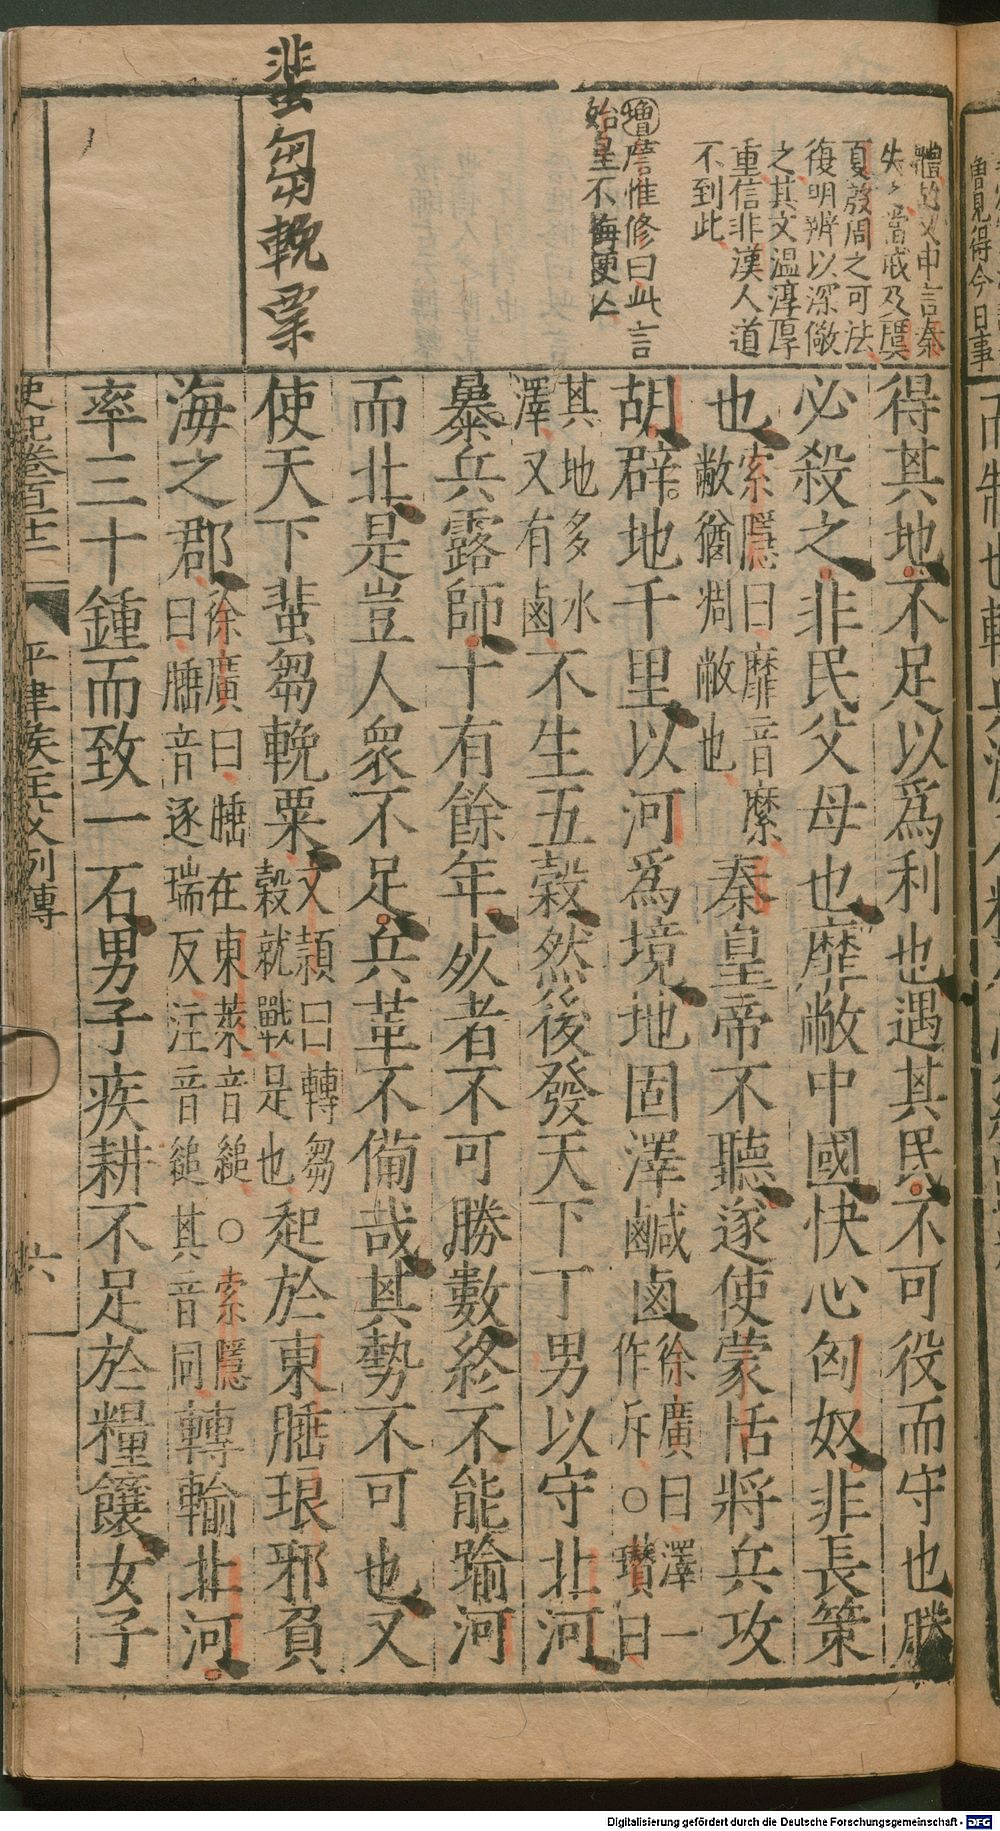 體故又申言秦
失之當戒及虞
夏殷周之可法
復明辨以深儆
之其文温淳厚
重信非漢人道
不到此
增唐惟修曰此言
始皇不悔更亡
蜚芻輓粟
得其地不足以爲利也遇其民不可役而守也勝
必殺之非民父母也靡敝中國快心匈奴非長策
也索隱曰靡音縻
敝猶凋敝也秦皇帝不聽遂使蒙恬將兵攻
胡辟地千里以河爲境地固澤鹹鹵徐廣曰澤一
作斥○瓚曰
其地多水
澤又有鹵不生五穀然後發天下丁男以守北河
暴兵露師十有餘年死者不可勝數終不能踰河
而北是豈人衆不足兵革不備哉其勢不可也又
使天下蜚芻輓粟文穎曰轉芻
穀就戰是也起於東腄琅邪負
海之郡徐廣曰腄在東萊音縋○索隱
曰腄音逐瑞反注音縋其音同轉輸北河
率三十鍾而致一石男子疾耕不足於糧饟女子
史記卷百十二
平津侯主父列傳
六
魯見得今日事
Digitalisierung gefördert durch die Deutsche Forschungsgemeinschaft - DFG